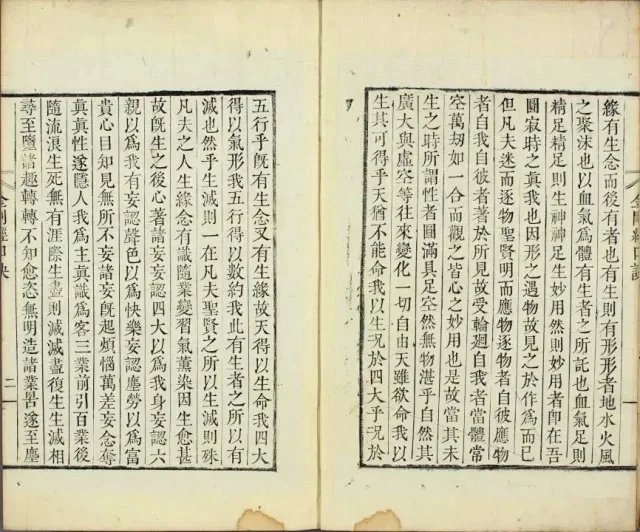 緣有生念而後有者也有生則有形形者地水火風
之聚沫也以血氣爲體有生者之所託也血氣足則
精足精足則生神神足生妙用然則妙用者卽在吾
圓寂時之真我也因形之遇物故見之於作爲而已
但凡夫迷而逐物聖賢明而應物逐物者自彼應物
者自我自彼者著於所見故受輪廻自我者當體常
空萬刼如一合而觀之皆心之妙用也是故當其未
生之時所謂性者圓滿具足空然無物湛乎自然其
廣大與虛空等往來變化一切自由天雖欲命我以
生其可得乎天猶不能命我以生况於四大乎况於
五行乎旣有生念又有生緣故天得以生命我四大
得以氣形我五行得以數約我此有生者之所以有
滅也然乎生滅則一在凡夫聖賢之所以生滅則殊
凡夫之人生緣念有識隨業變習氣薰染因生愈甚
故旣生之後心著諸妄妄認四大以爲我身妄認六
親以爲我有妄認聲色以爲快樂妄認塵勞以爲富
貴心目知見無所不妄諸妄旣起煩惱萬差妄念奪
真真性遂隱人我爲主真識爲客三業前引百業後
隨流浪生死無有涯際生盡則滅滅盡復生生滅相
尋至墮諸趣轉轉不知愈恣無明造諸業罟遂至塵
二